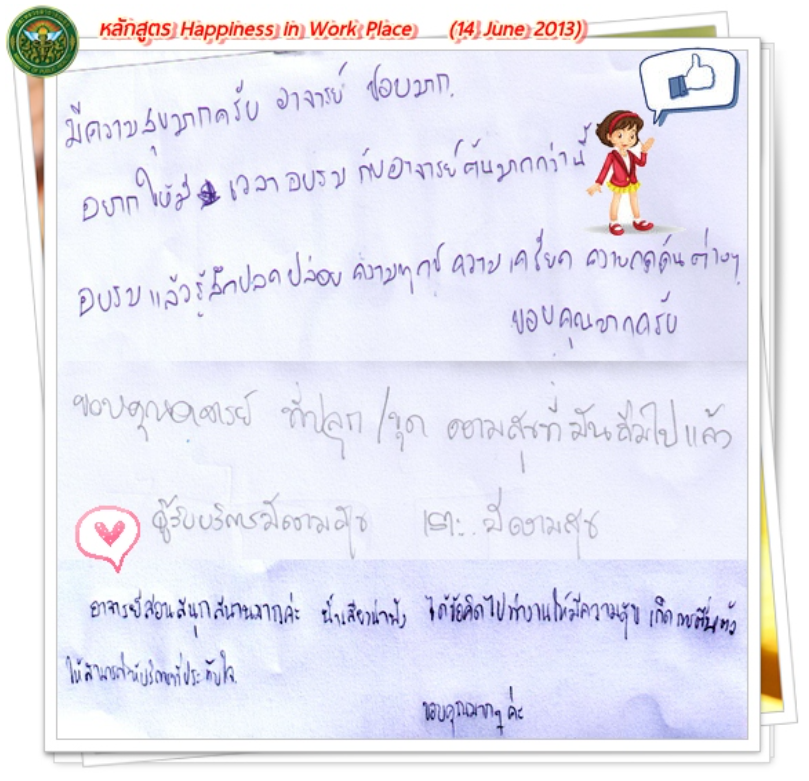 หลักสูตร Happiness in Work Place (14 June 2013)
มีความสุขมากครับ อาจารย์ ชอบมาก.
อยากให้มี เวลาอบรม กับอาจารย์ มากกว่านี้
อบรมแล้วรู้สึกปลดปล่อย ความทุกข์ ความเครียด ความกดดันต่างๆ
ขอบคุณมากครับ
ขอบคุณอาจารย์ ที่ปลุก/ขุด ความสุขที่มันลืมไปแล้ว
ผู้รับบริการมีความสุข มีความสุข
อาจารย์สอนสนุกสนานมากค่ะ น้ำเสียงน่าฟัง ได้ข้อคิดไปทำงานให้มีความสุข เกิดการตื่นตัว
ให้สามารถให้บริการที่ประทับใจ
ขอบคุณมากๆ ค่ะ